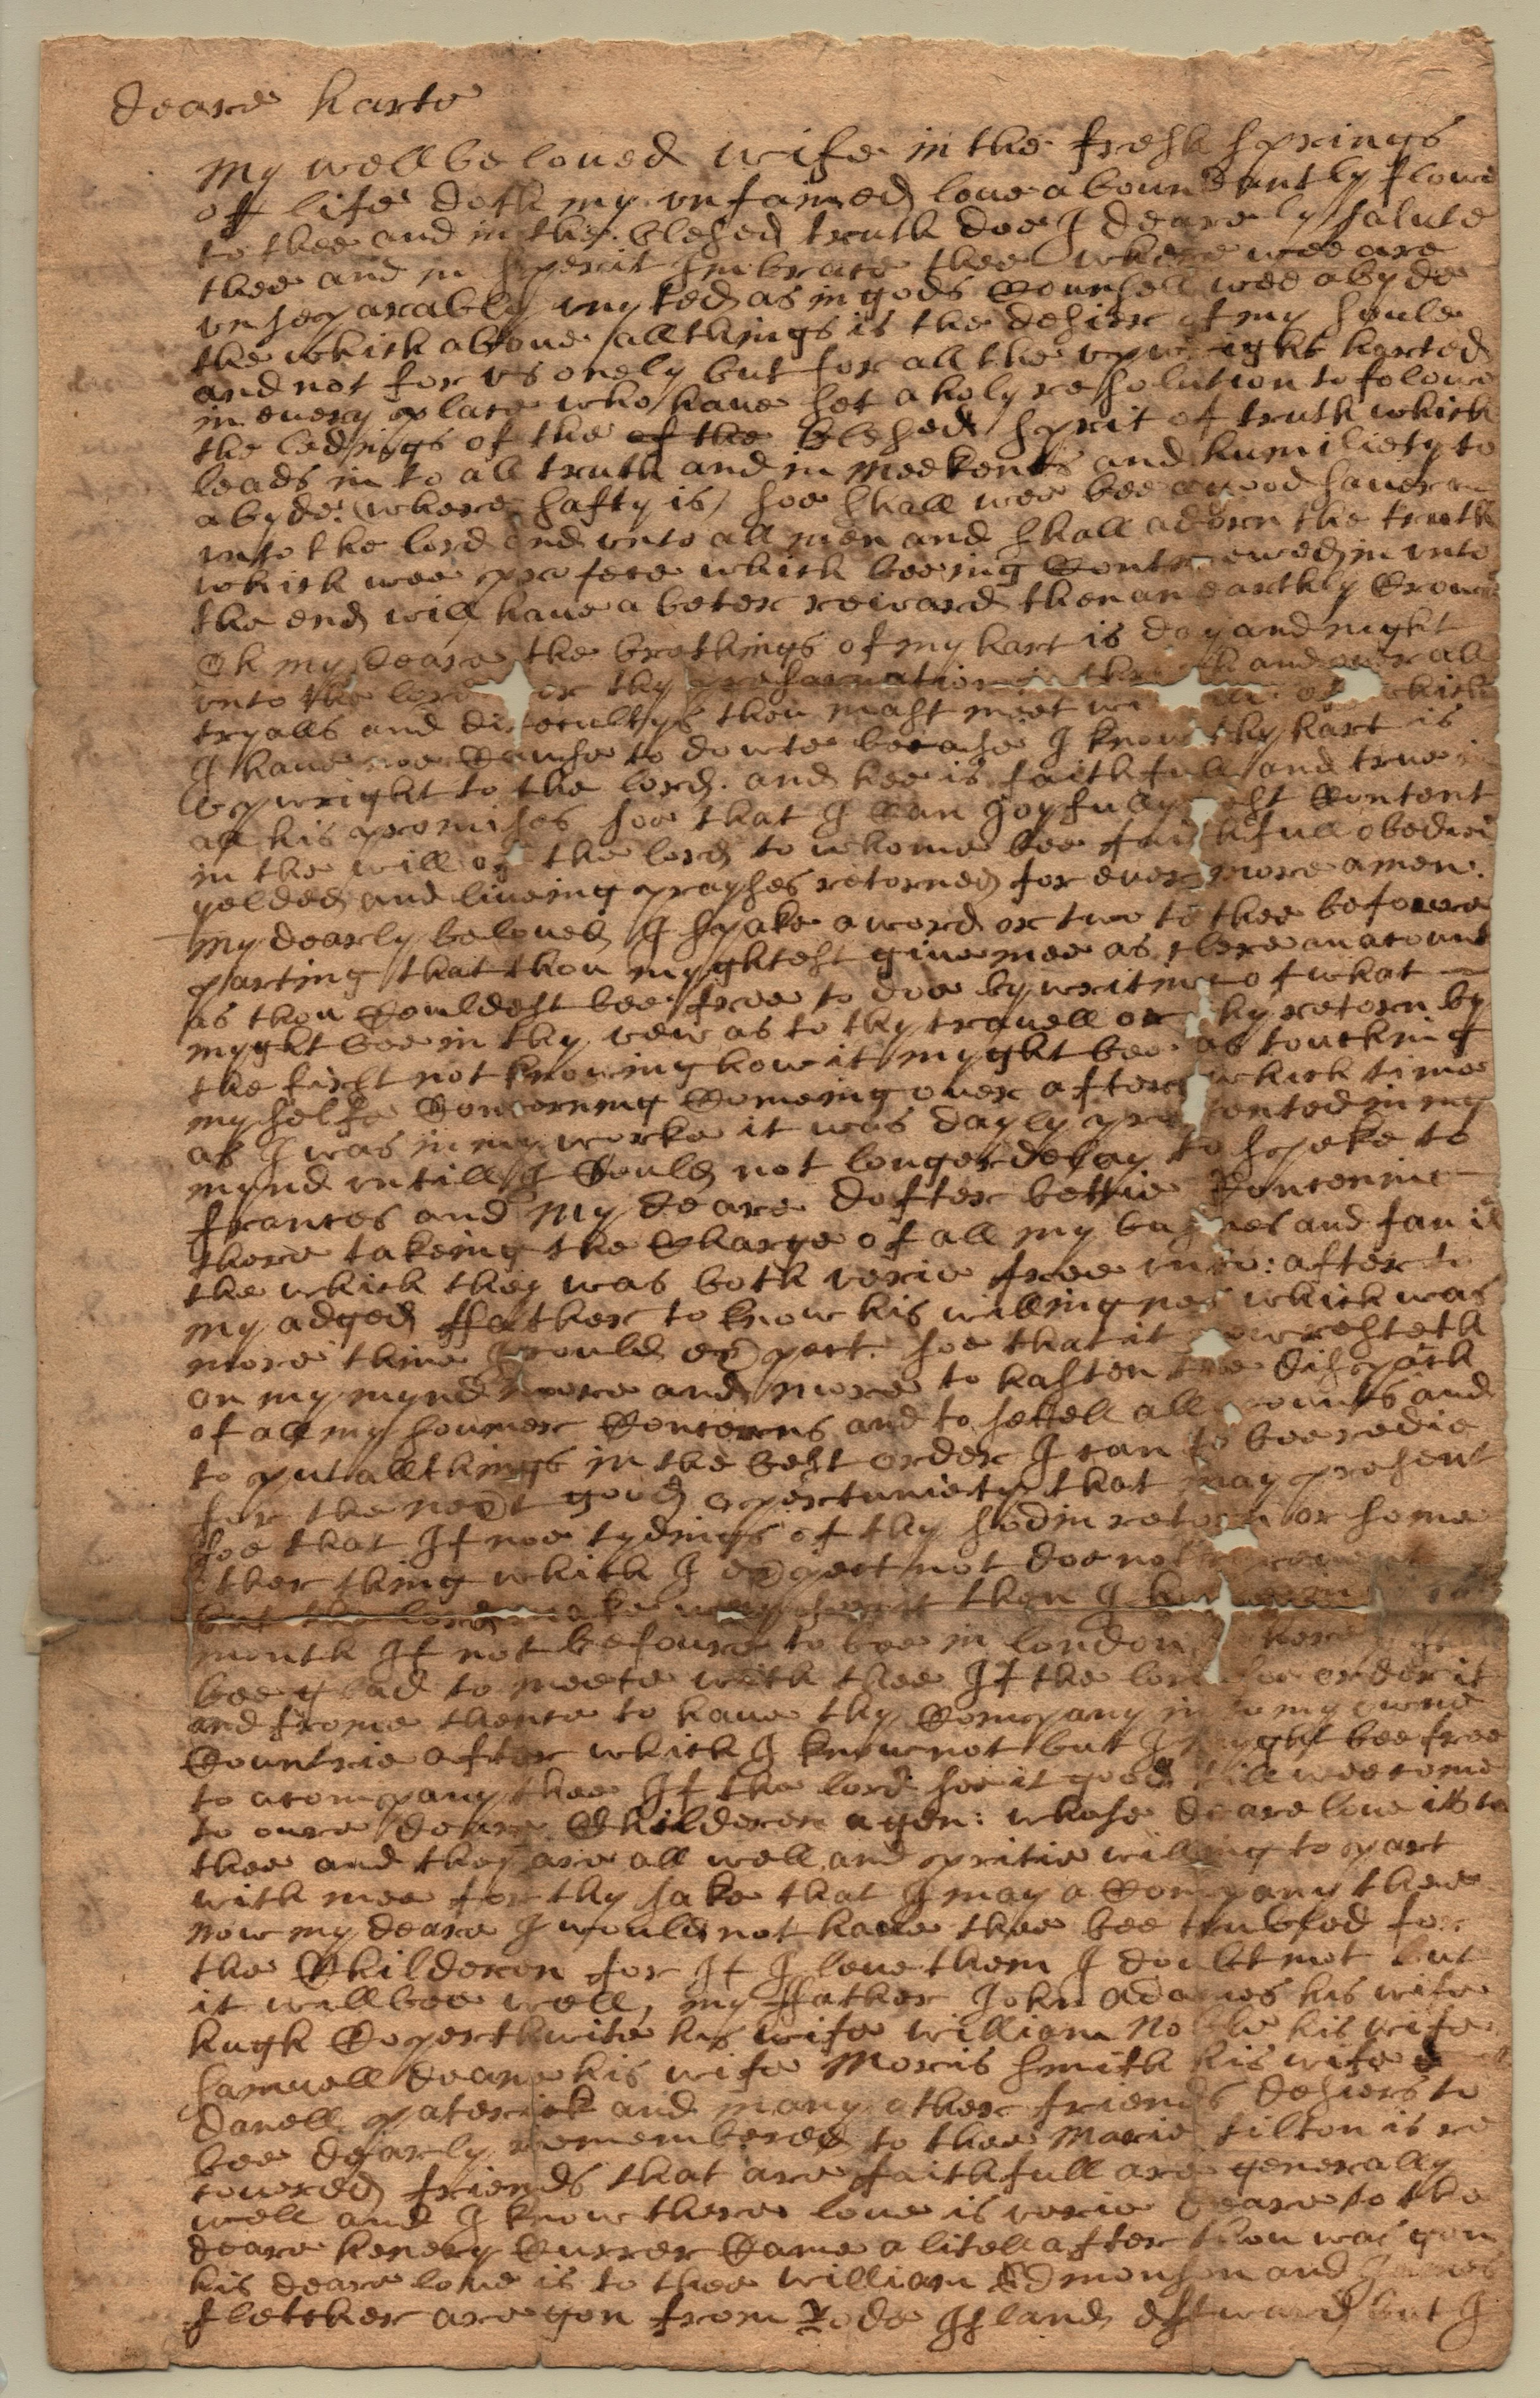 deare harte
My well beloued wife in the fresh springs
off life doth my vnfained loue aboundantly flowe
to thee and in the blesed truth doe I dearely salute
thee and in sperit Imbrace thee where wee are
vnseparably vnyted as in gods Counsell wee abyde
the which aboue all things is the desier of my soule
and not for vs onely but for all the vpwright harted
in euery place who haue set a holy resolution to folowe
the ledings of the of the blesed sprit of truth which
leads in to all truth and in meeknes and humiliety to
abyde where safty is, soe shall wee bee a good sauer
vnto the lord and vnto all men and shall adorn the truth
which wee profece which beeing Contenewed in vnto
the end will haue a beter reward then an earthly Crowne
Oh my deare the brethings of my hart is day and night
vnto the lord for thy preseruation in through and ouer all
tryalls and difecultys thou mast meet with of which
I haue noe Cause to dowte becase I know thy hart is
vpwright to the lord. and hee is faithfull and true in
all his promises soe that I Can Joyfully rest Content
in the will of the lord to whome bee faithfull obedi
yelded and liueing prayses retorned for euer more amen.
My dearly beloued I spake a word or two to thee befoure
parting that thou myghtest giue mee as clere an acount
as thou Couldest bee free to doe by writing of what
myght bee in thy vew as to thy trauell or thy retorn by
the first not knowing how it myght bee as touching
my selfe Concerning Comeing ouer after which time
as I was in my worke it was dayly presented in my
mynd vntill I Could not longer delay to speke to
frances and my deare dofter bettie Concerning
there takeing the Charge of all my busnes and famil
the which they was both verie free vnto: after to
my adged ffather to know his willingnes which was
more then I Could expect. soe that it
on my mynd more and more to hasten the dispatch
of all my soumer Concerns and to settell all counts and
to put all things in the best order I can to bee redie
for the next good opertuniety that may present
soe that If noe tydings of thy sodin retorn or some
other thing which I expect not doe not
but the lord make way then I
month If not befoure to bee in london where
bee glad to meete with thee If the lord soe order it
and frome thence to haue thy Company in to my owne
Countrie after which I know not but I myght bee free
to acompany thee If the lord see it good till wee come
to oure deare Childeren agen: whose deare loue is to
thee and they are all well and pritie willing to part
with mee for thy sake that I may acCompany thee
now my deare I would not haue thee bee trubled for
the Childeren for If I leue them I doubt not but
it will bee well, my ffather John adames his wife
hugh Coperthwite his wife william Noble his wife
samuell deane his wife Moris smith his wife
danell paterick and many other friends desiers to
bee dearly remembered to thee Marie tilton is re
couered friends that are faithfull are generally
well and I know there loue is verie deare to the
deare henery Currer Came a litell after thou was gon
his deare loue is to thee william Edmonson and James
fletcher are gon from Rode Island estward but I